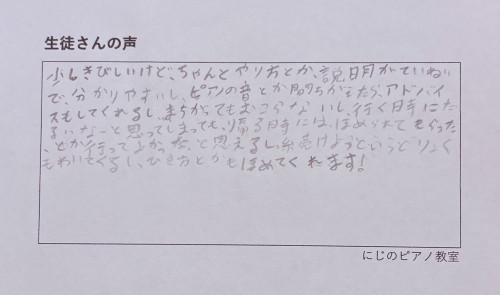 生徒さんの声
少しきびしいけど、ちゃんとやり方とか、説明がていねい
で、分かりやすいし、ピアノの音とかまちがえたら、アドバイ
スもしてくれるし、まちがってもおこらないし、行く時にだ
るいなーと思ってしまっても、帰る時には、ほめられてもらった、
とか行ってよかったな、と思えるし、続けようというどりょく
もわいてくるし、ひき方とかもほめてくれます!
にじのピアノ教室